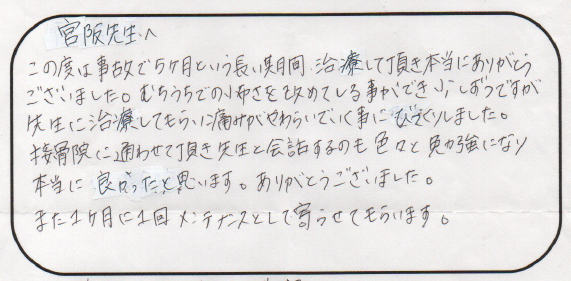 宮阪先生へ
この度は事故で5ヶ月という長い期間、治療して頂き本当にありがとう
ございました。むちうちでの怖さを改めてしる事ができ、少しずつですが
先生に治療してもらい痛みがやわらいでいく事にびっくりしました。
接骨院に通わせて頂き先生と会話するのも色々と勉強になり
本当に良かったと思います。ありがとうございました。
また1ヶ月に1回メンテナンスとして寄らせてもらいます。